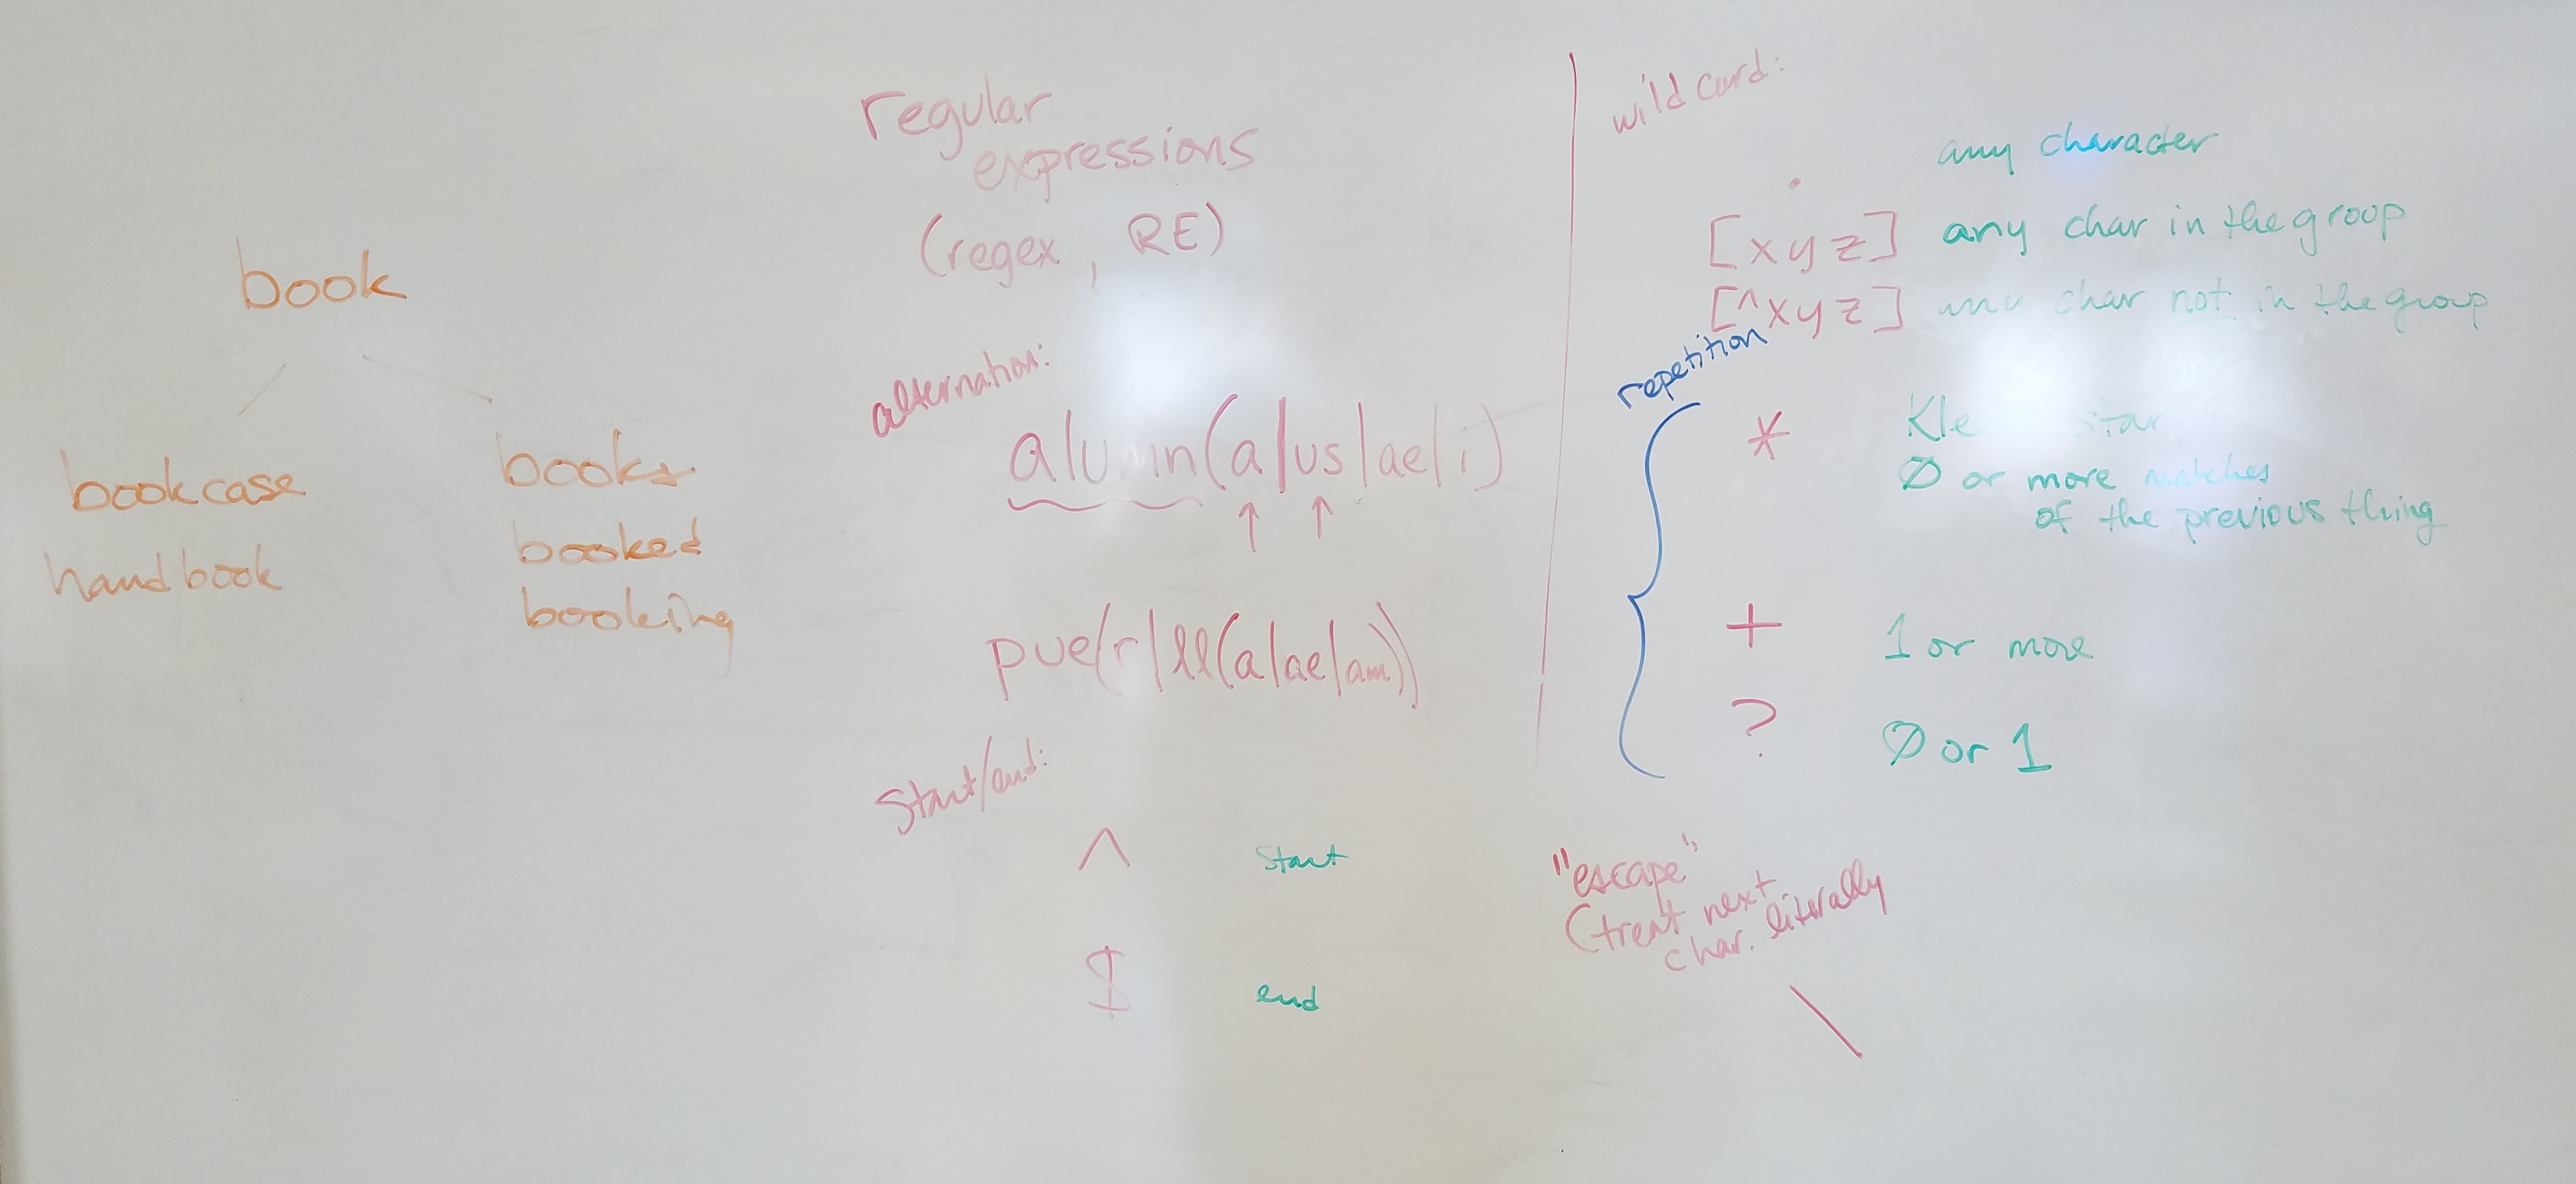 book
bookcase
handbook
books
booked
booking
regular
expressions
(regex, RE)
alternation:
alumn(a|us|ae|i)
↑ ↑
pue(r|ll(a|ae|am))
Start/end:
^ start
$ end
wild card:
. any character
[xyz] any char in the group
[^xyz] any char not in the group
repetition
* star
Ø or more matches
of the previous thing
+ 1 or more
? Ø or 1
"escape"
(treat next
char. literally
\